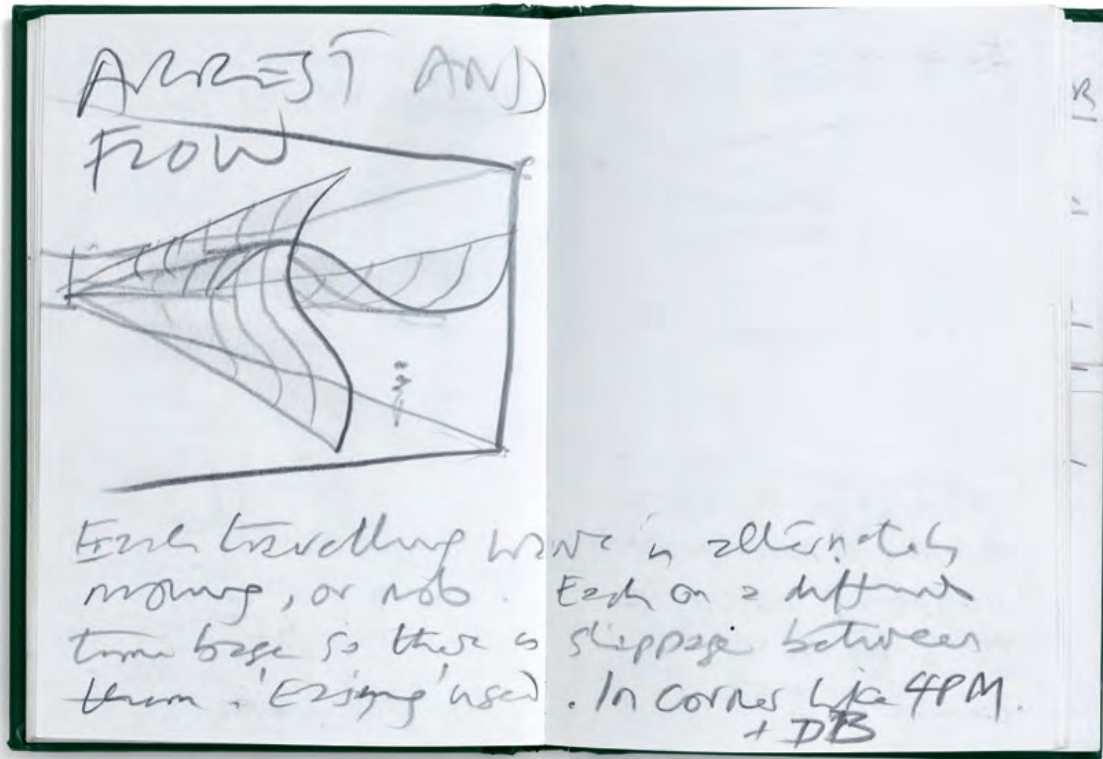 ARREST AND
FLOW
Each travelling wave is alternately
moving, or not. Each on a different
time base so there is slippage between
them. 'Easing' used. In corner like 4PM.
+ DB
R